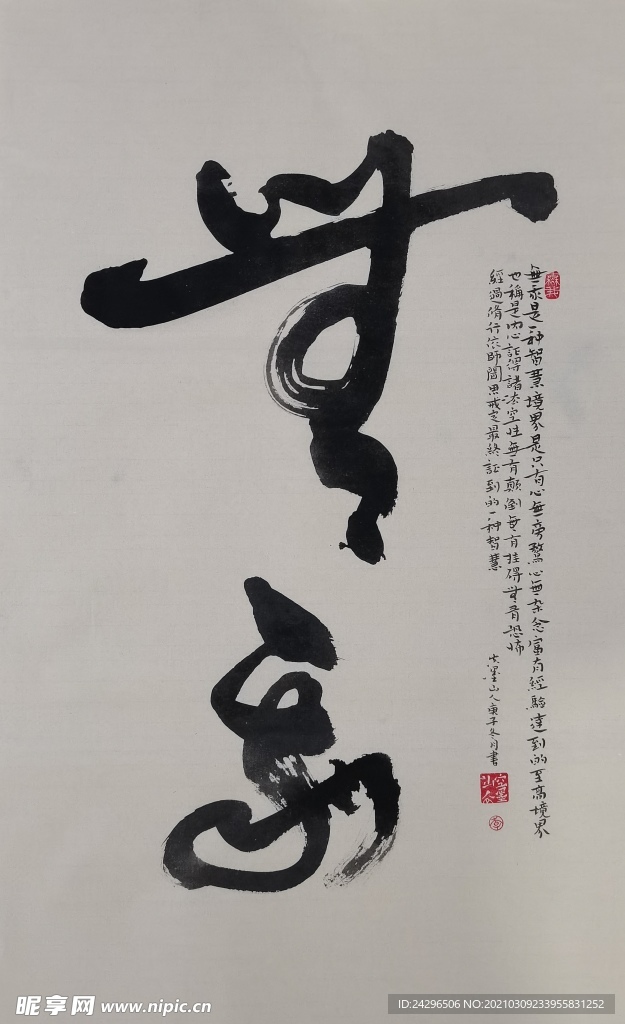 無我
無我是一种智慧境界是只有心無旁騖心無杂念富有經驗達到的至高境界
也稱是內心証得諸法空性無有顛倒無有挂碍無有恐怖
經過脩行依師聞思戒定最終証到的一种智慧
空墨山人庚子冬月書
昵享网 www.nipic.cn
ID:24296506 NO:20210309233955831252